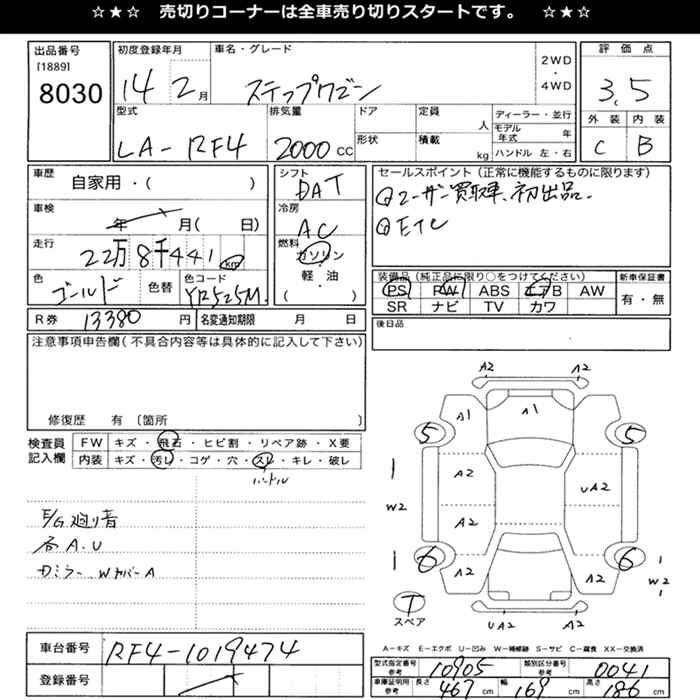 ☆★☆ 売切りコーナーは全車売り切りスタートです。 ☆★☆
出品番号
[1889]
8030
初度登録年月
14 2月
車名・グレード
ステップワゴン
2WD
・
4WD
評価点
3.5
外装 内装
C B
型式
LA-RF4
排気量
2000cc
ドア
形状
定員
人
積載
kg
ディーラー・並行
モデル年式 年
ハンドル 左・右
車歴
自家用・( )
車検
年 月( 日)
走行
22万8千441km
色
ゴールド
色替
色コード
YR525M
シフト
DAT
冷房
AC
燃料
ガソリン
軽・油
( )
セールスポイント(正常に機能するものに限ります)
①ユーザー買取車、初出品。
②ETC
装備品(純正品に限り○をつけてください)
PS PW ABS エアB AW
SR ナビ TV カワ
新車保証書
有・無
R券 13380円
名変通知期限 月 日
後日品
注意事項申告欄(不具合内容等は具体的に記入して下さい)
修復歴 有〔箇所 〕
検査員
記入欄
FW キズ・飛石・ヒビ割・リペア跡・X要
内装 キズ・汚レ・コゲ・穴・スレ・キレ・破レ
ハンドル
E/G廻り音
各A.U
Wカバー A
A2 A2
A1 A1
5 5
A2
UA2
1
W2
A2
1
6 6
A2 A2
1
W2
T
スペア
UA2 A2
A-キズ E-エクボ U-凹み W-補修跡 S-サビ C-腐食 XX-交換済
車台番号
RF4-1019474
登録番号
型式指定番号
参考
10905
類別区分番号
参考
0041
車庫証明用
参考
長さ 467cm 幅 169cm 高さ 186cm